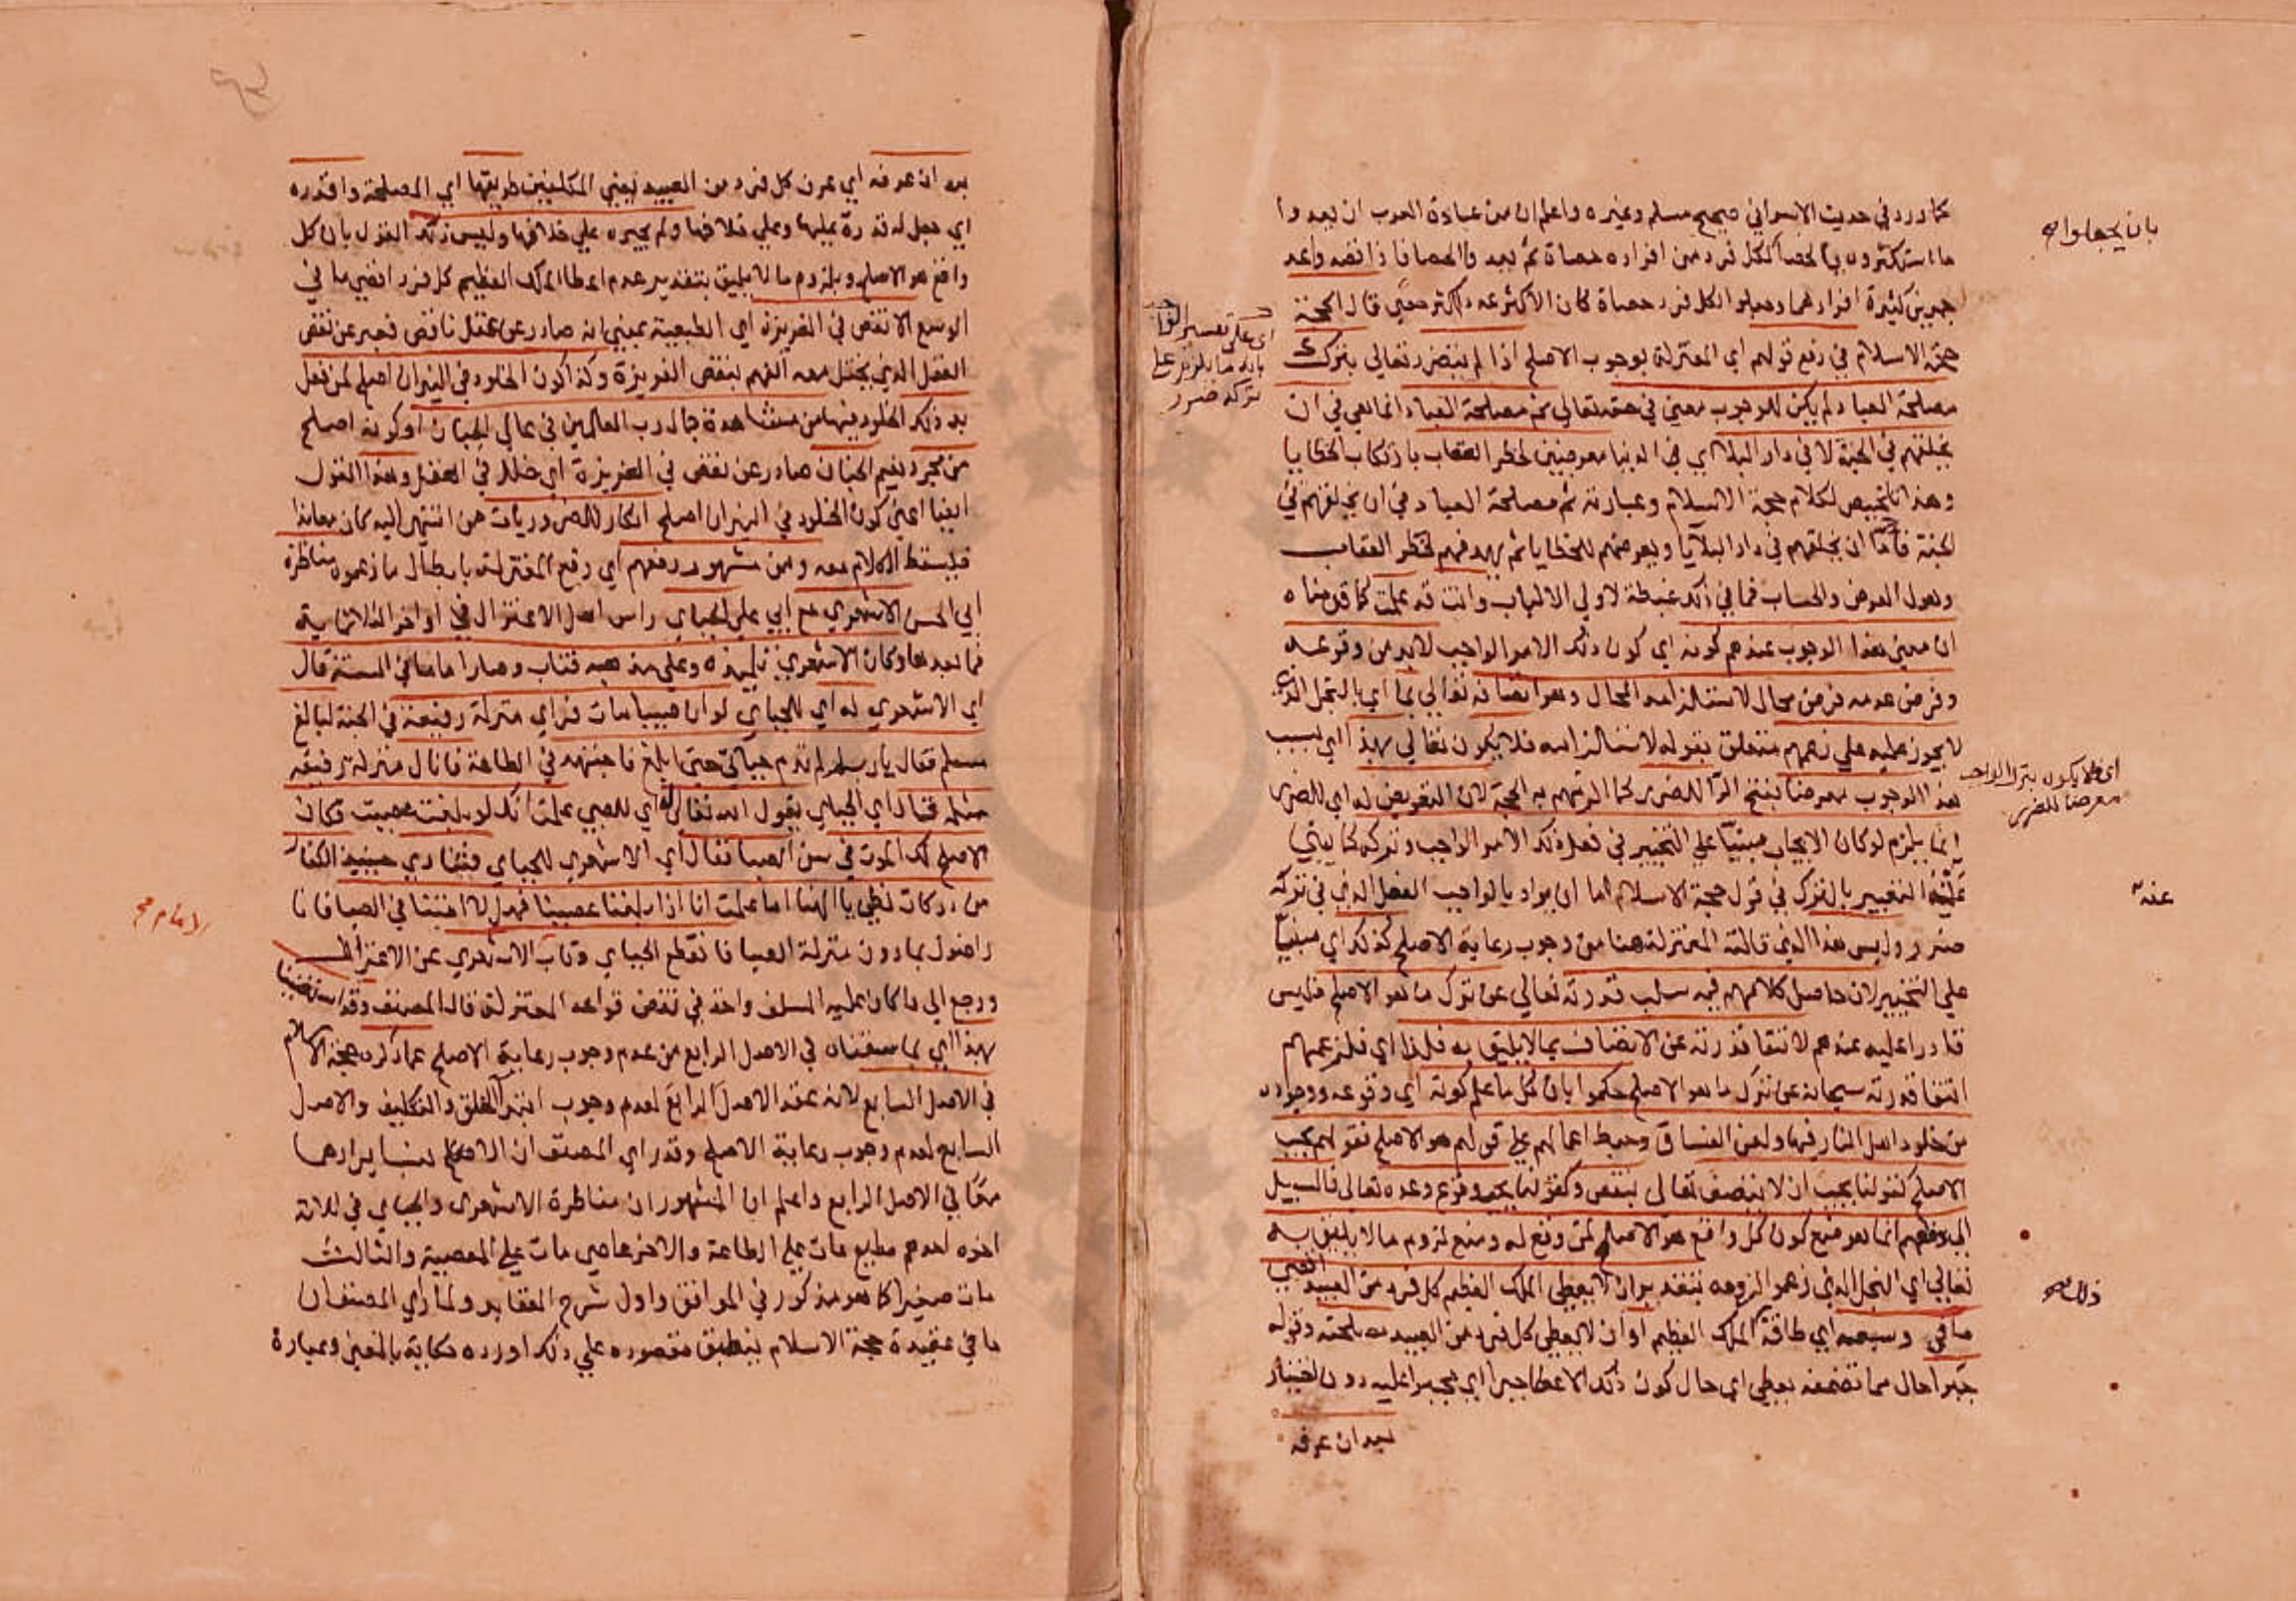 كما ورد في حديث الاسرا في صحيح مسلم وغيره واعلم ان من عبادة العرب ان يعدوا
ما استكثروه بالحصا لكل فرد من افراده حصاة ثم يعد والحصا فاذا قصد واعد
كثيرة افرادهما وجعلوا لكل فرد حصاة كان الاكثر عددا اكثر حصي قال الحجة
حجة الاسلام في دفع قولهم اي المعتزلة بوجوب الاصلح اذا لم يتضرر تعالي بترك
مصلحة العباد لم يكن للوجوب معني في حقه تعالي ثم مصلحة العباد انما هي في ان
يخلقهم في الجنة لا في دار البلا اي في الدنيا معرضين لخطر العقاب بارتكاب الخطايا
وهذا تلخيص لكلام حجة الاسلام وعبارته ثم مصلحة العباد في ان يخلقهم في
الجنة فاما ان يخلقهم في دار البلايا ويعرضهم للخطايا ثم يهدفهم لخطر العقاب
وهول العرض والحساب فما في ذلك غبطة لاولي الالباب وانت قد علمت مما قدمناه
ان معني هذا الوجوب عندهم كونه اي كون ذلك الامر الواجب لابد من وقوعه
وفرض عدمه فرض محال لاستلزامه المحال وهو اتصافه تعالي بما اي بالبخل الذي
لا يجوز عليه علي زعمهم متعلق بقوله لاستلزامه فلا يكون تعالي بهذا اي بسبب
هذا الوجوب معرضا بفتح الرا للضرر كما الزمهم به الحجة لان التعريض له اي للضرر
انما يلزم لو كان الايجاب مبنيا علي التخيير في فعل ذلك الامر الواجب وتركه كما ينبي
عنه التعبير بالترك في قول حجة الاسلام اما ان يراد بالواجب الفعل الذي في تركه
ضرر وليس هذا الذي قالته المعتزلة هنا من وجوب رعاية الاصلح كذلك اي مبنيا
علي التخيير لان حاصل كلامهم فيه سلب قدرته تعالي عن ترك ما هو الاصلح فليس
قادرا عليه عندهم لانتفا قدرته عن الاتصاف بما لا يليق به فلذا اي فلزعمهم
انتفا قدرته سبحانه عن ترك ما هو الاصلح حكموا بان كل ما علم كونه اي وقوعه ووجوده
من خلود اهل النار فيها ولعن الفساق وحبط اعمالهم علي قولهم هو الاصلح فقولهم يجب
الاصلح كقولنا يجب ان لا يتصف تعالي بنقص وكقولنا يجب وقوع وعده تعالي فالسبيل
في دفعهم انما هو منع كون كل واقع هو الاصلح لمن وقع له ومنع لزوم ما لا يليق به
تعالي اي البخل الذي زعموا لزومه بتقدير ان لا يعطي الملك العظيم كل فرد من العبيد اقصي
ما في وسعه اي طاقة الملك العظيم او ان لا يعطي كل فرد من العبيد مصلحته وقوله
جبرا حال مما تضمنه يعطي اي حال كون ذلك الاعطا جبرا اي مجبرا عليه دون اختيار
بعد ان عرفه
بان يجعلوا
اي علي تفسير الواجب
بانه ما يلزم علي
تركه ضرر
اي فلا يكون بترك الواجب
معرضا للضرر
عنه
ذلك
بعد ان عرفه اي عرف كل فرد من العبيد يعني المكلفين طريقها اي المصلحة واقدره
اي جعل له قدرة عليها وعلي خلافها ولم يجبره علي خلافها وليس ذلك القول بان كل
واقع هو الاصلح ويلزم ما لا يليق بتقدير عدم اعطا الملك العظيم كل فرد اقصي ما في
الوسع الا نقص في الغريزة اي الطبيعة بمعني انه صادر عن عقل ناقص فعبر عن نقص
العقل الذي يختل معه الفهم بنقص الغريزة وكذا كون الخلود في النيران اصلح لمن فعل
به ذلك الخلود فيها من مشاهدة جمال رب العالمين في عالي الجنان او كونه اصلح
من مجرد نعيم الجنان صادر عن نقص في الغريزة اي خلل في العقل وهذا القول
ايضا اعني كون الخلود في النيران اصلح انكار للضروريات من انتهي اليه كان معاندا
فليسقط الكلام معه ومن مشهور دفعهم اي دفع المعتزلة بابطال ما زعموه مناظرة
ابي الحسن الاشعري مع ابي علي الجباي راس اهل الاعتزال في اواخر الثلاثماية
فما بعدها وكان الاشعري تلميذه وعلي مذهبه فتاب وصار اماما في السنة قال
اي الاشعري له اي للجباي لو ان صبيا مات فراي منزلة رفيعة في الجنة لبالغ
مسلم فقال يا رب لم لم تدم حياتي حتي ابلغ فاجتهد في الطاعة فانال منزلة رفيعة
مثله فقال اي الجباي يقول الله تعالي له اي للصبي علمت انك لو بلغت عصيت فكان
الاصلح لك الموت في سن الصبا فقال اي الاشعري للجباي فتنادي حينيذ الكفار
من دركات لظي يا الهنا اما علمت انا اذا بلغنا عصينا فهلا امتنا في الصبا فانا
راضون بما دون منزلة الصبا فانقطع الجباي وتاب الاشعري عن الاعتزال
ورجع الي ما كان عليه السلف واخذ في نقض قواعد المعتزلة قال المصنف وقد استغنينا
بهذا اي بما سقناه في الاصل الرابع من عدم وجوب رعاية الاصلح عما ذكره حجة الاسلام
في الاصل السابع لانه عقد الاصل الرابع لعدم وجوب ابتدا الخلق والتكليف والاصل
السابع لعدم وجوب رعاية الاصلح وقد راي المصنف ان الاصلح مناسب ايرادهما
معا في الاصل الرابع واعلم ان المشهور ان مناظرة الاشعري والجباي في ثلاثة
اخوة احدهم مطيع مات علي الطاعة والاخر عاصي مات علي المعصية والثالث
مات صغيرا كما هو مذكور في المواقف واول شرح العقايد ولما راي المصنف ان
ما في عقيدة حجة الاسلام ينطبق مقصوده علي ذلك اورده حكاية بالمعني وعبارة